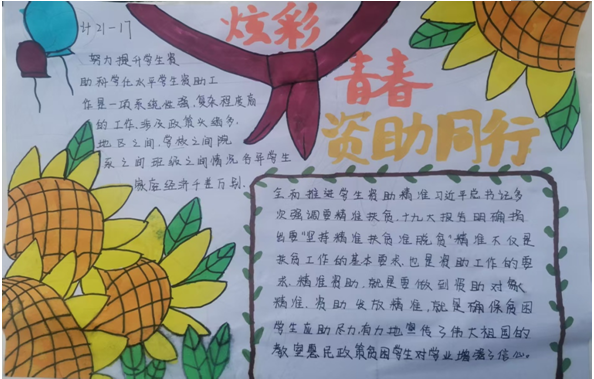 计21-17
炫彩
青春
资助同行
努力提升学生资
助科学化水平学生资助工
作是一项系统性强,复杂程度高
的工作,涉及政策众多,
地区之间,学校之间院
系之间班级之间情况各异学生
家庭经济千差万别.
全面推进学生资助精准习近平总书记多
次强调要精准扶贫,十九大报告明确指
出要"坚持精准扶贫准脱贫"精准不仅是
扶贫工作的基本要求,也是资助工作的要
求,精准资助,就是要做到资助对象
精准、资助发放精准,就是确保贫困
学生应助尽力有力地宣传了伟大祖国的
教室惠民政策贫困学生对学业增强了信心。